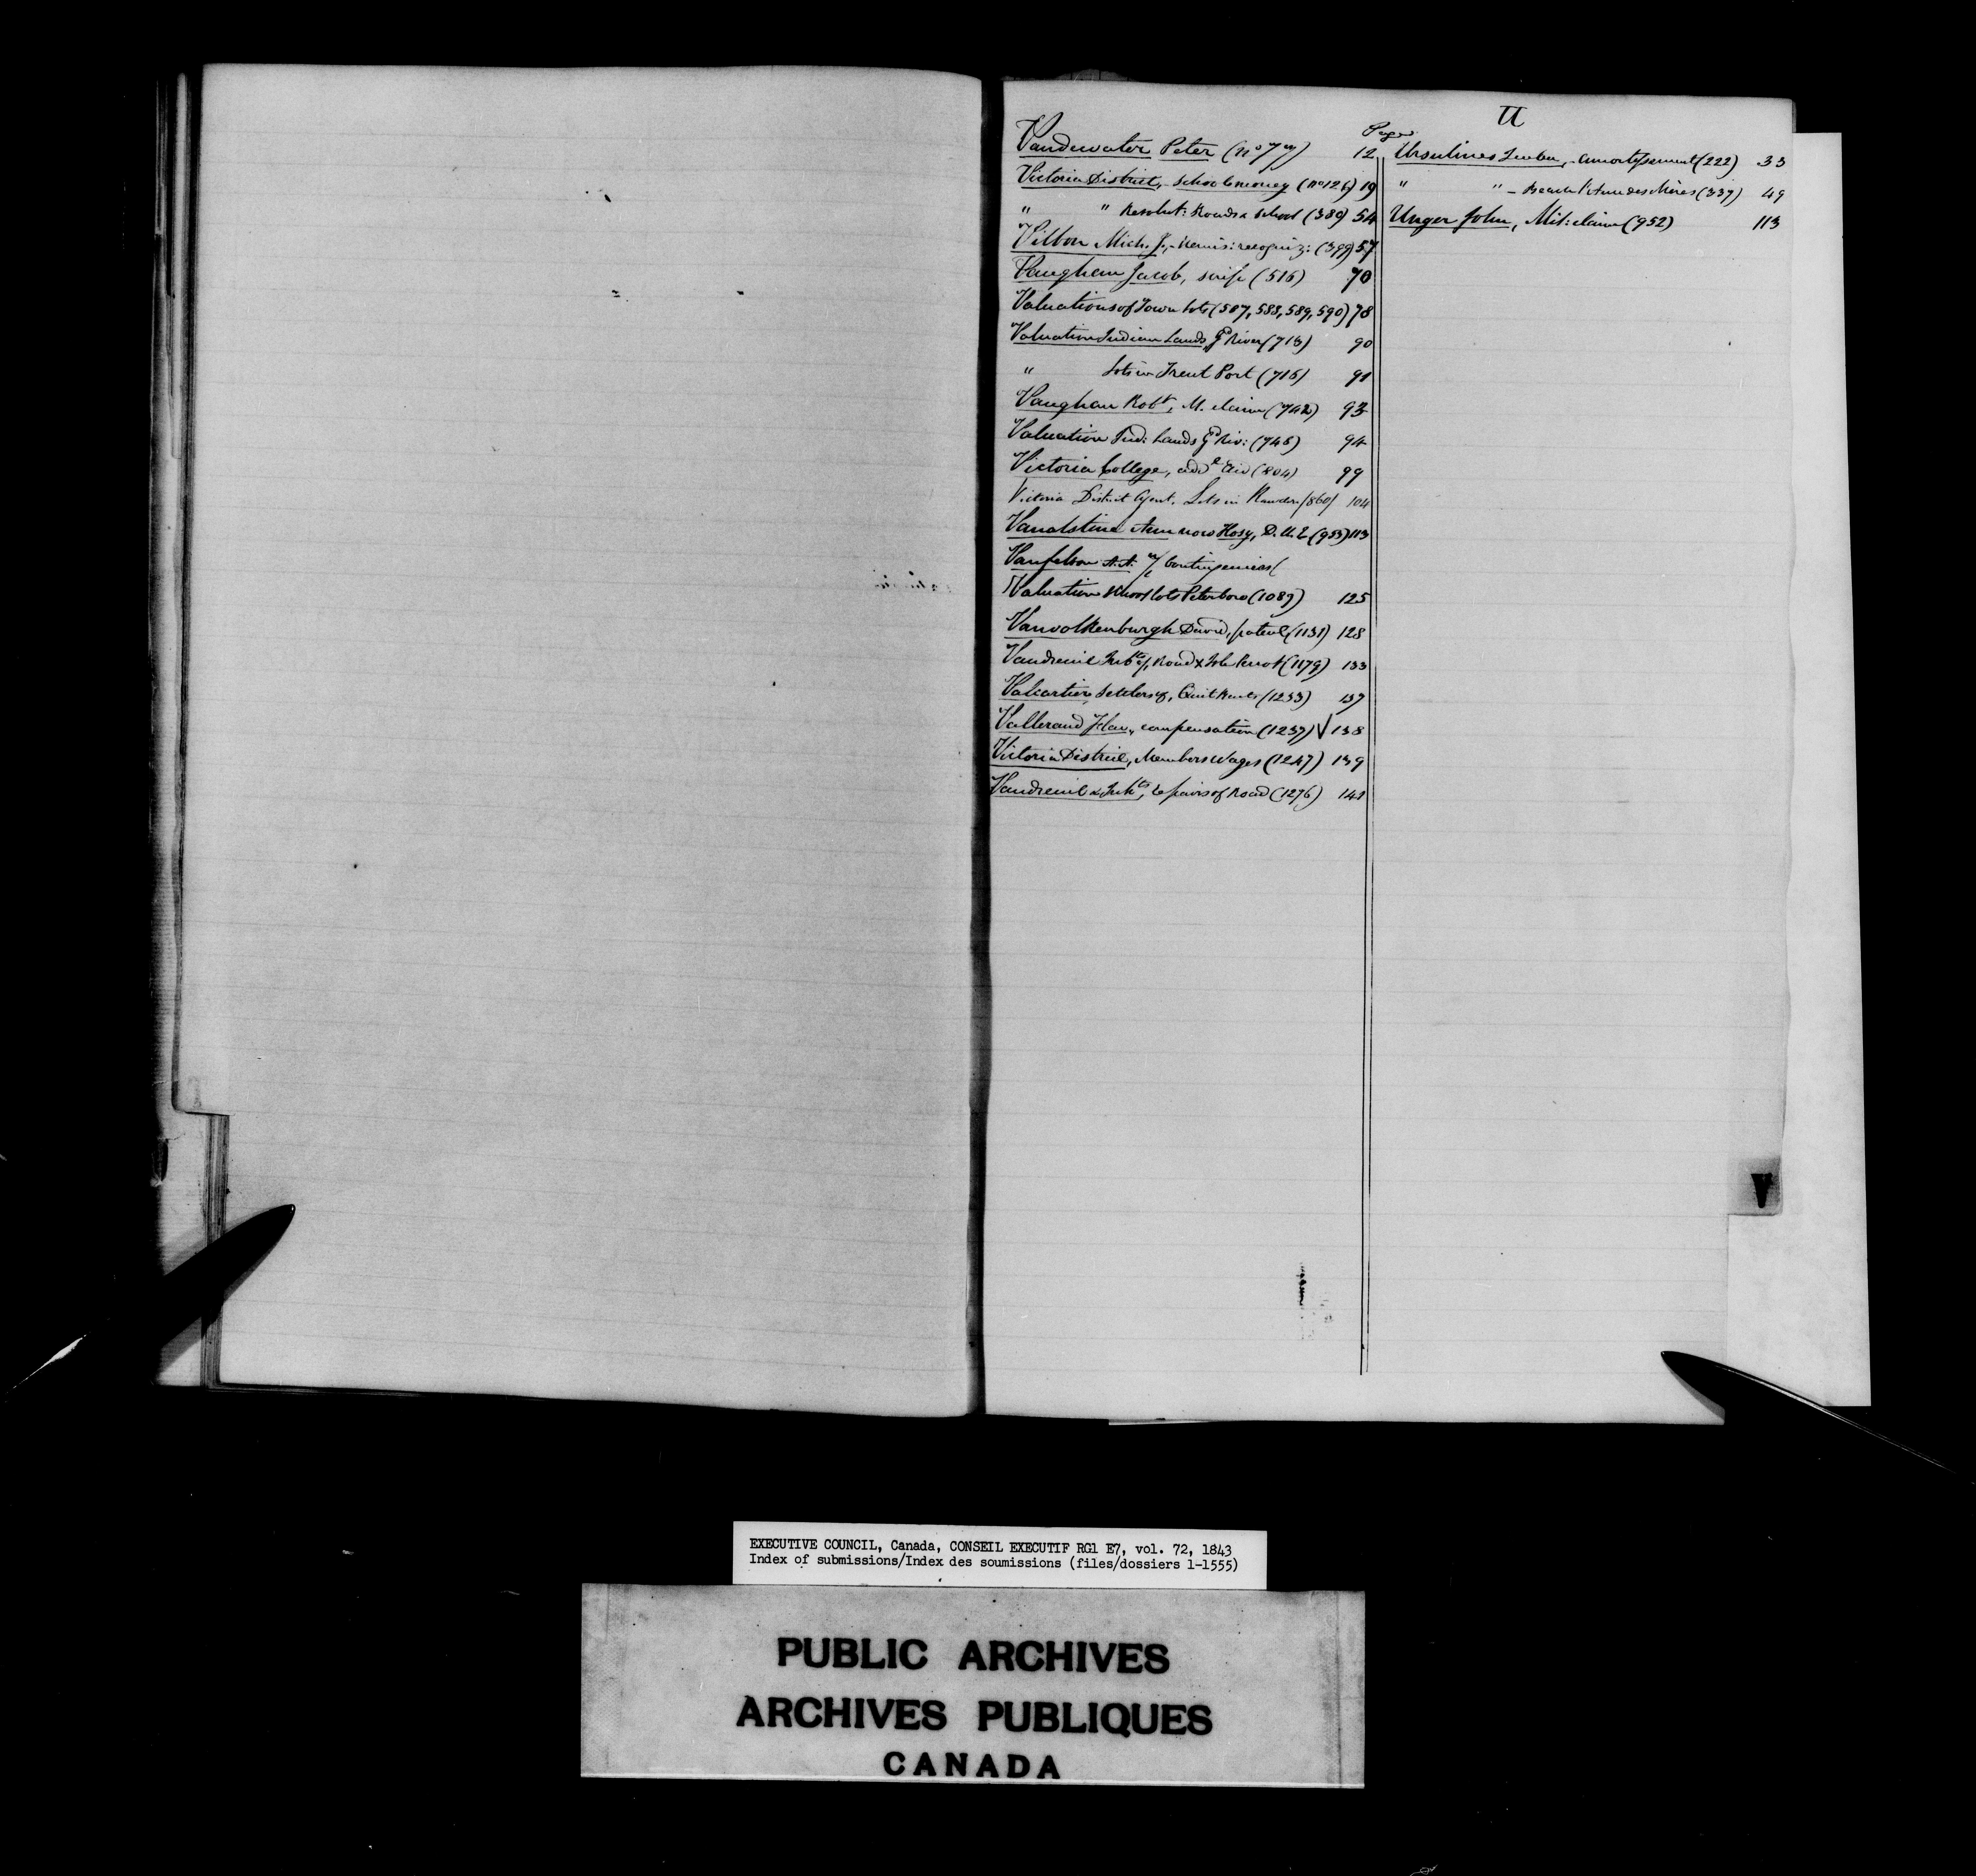 Page
Vandewater Peter (no 77) 12
Victoria District, - School money (no 126) 19
" " Resolut: Roads & School (389) 54
Vilbon Mich. J., - Remis: recogniz: (399) 57
Vaughan Jacob, scrip (516) 70
Valuations of Town Lots (587, 588, 589, 590) 78
Valuation Indian Lands, Gd River (713) 90
" Lots in Trent Port (716) 91
Vaughan Robt, M. claim (742) 93
Valuation Ind: Lands Gd Riv: (746) 94
Victoria College, addl Aid (804) 99
Victoria District Agent. Lots in Rawdon (860) 104
Vanalstine Ann now Hosy, D.U.E (953) 113
Vanfelson A.A. Contingencies (
Valuation School lots Peterboro (1089) 125
Vanvolkenburgh David, patent (1131) 128
Vaudreuil Inhts of, Road & Isle Perrot (1179) 133
Valcartier, Settlers of, Quit Rents (1233) 137
Vallerand Flav., compensation (1237) V 138
Victoria District, Members Wages (1247) 139
Vaudreuil & Inhts, Repairs of Road (1276) 141
U
Ursulines Quebec, - amortissement (222) 33
" " - Beach l'Anse des Mères (337) 49
Unger John, Mil: claim (952) 113
V
EXECUTIVE COUNCIL, Canada, CONSEIL EXECUTIF RG1 E7, vol. 72, 1843
Index of submissions/Index des soumissions (files/dossiers 1-1555)
PUBLIC ARCHIVES
ARCHIVES PUBLIQUES
CANADA